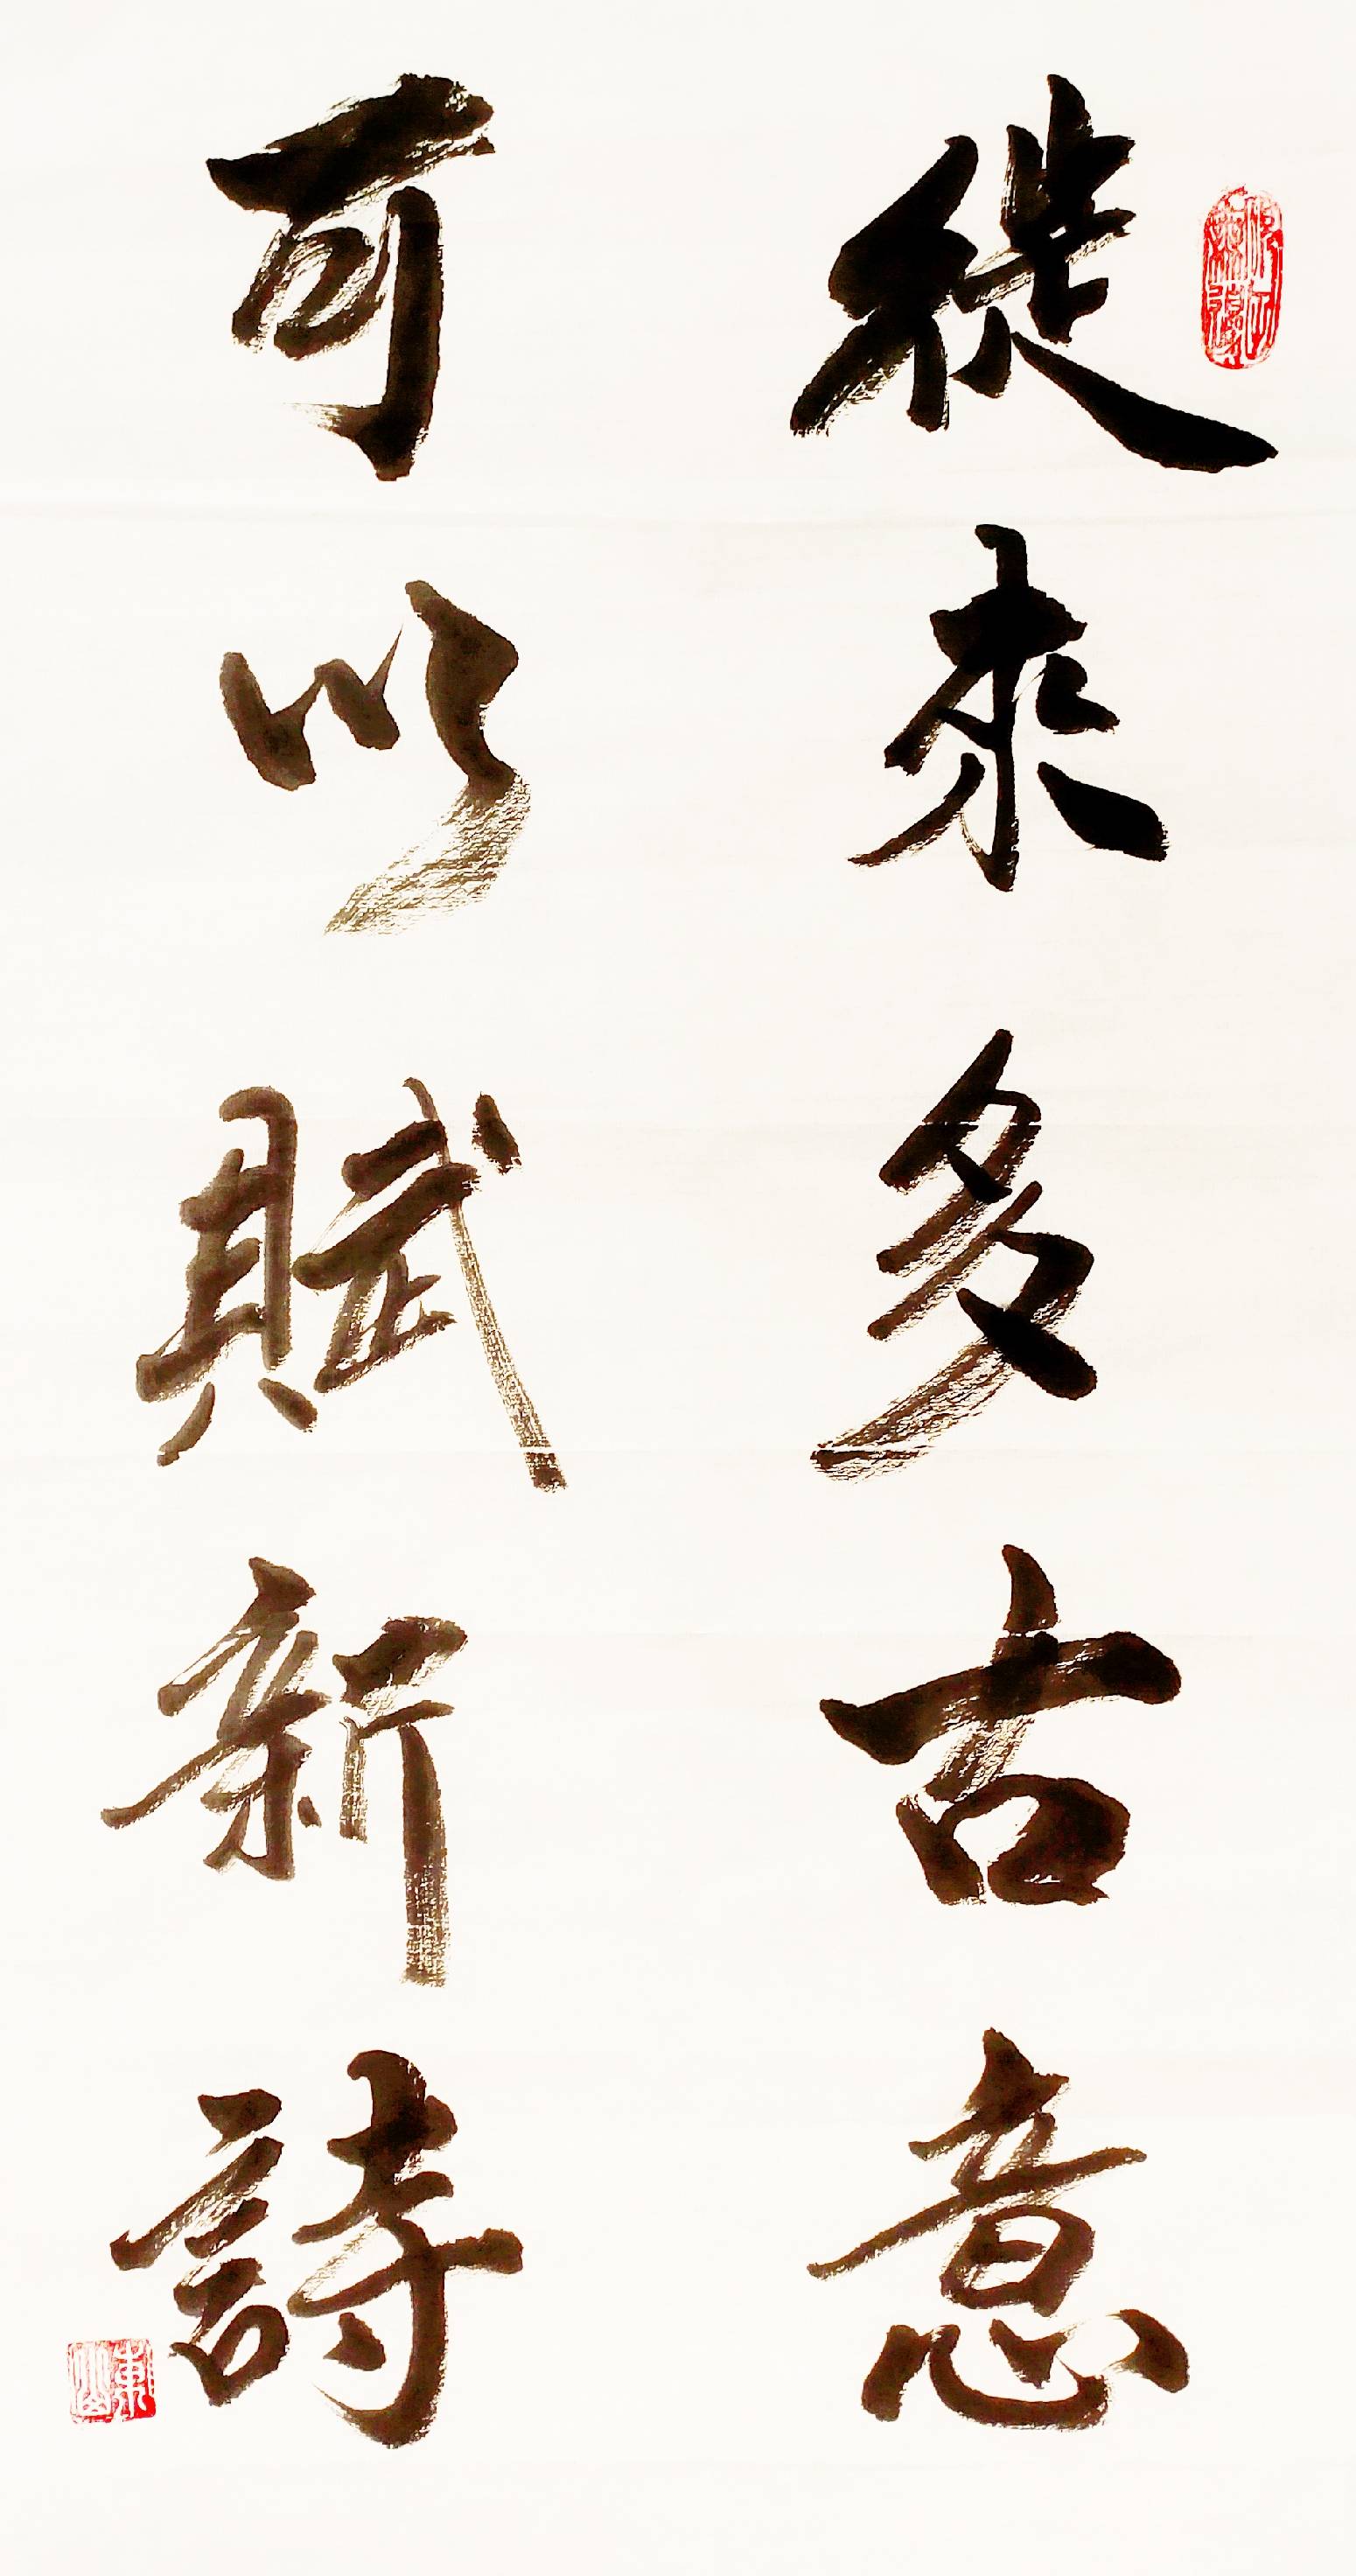 從來多古意
可以賦新詩